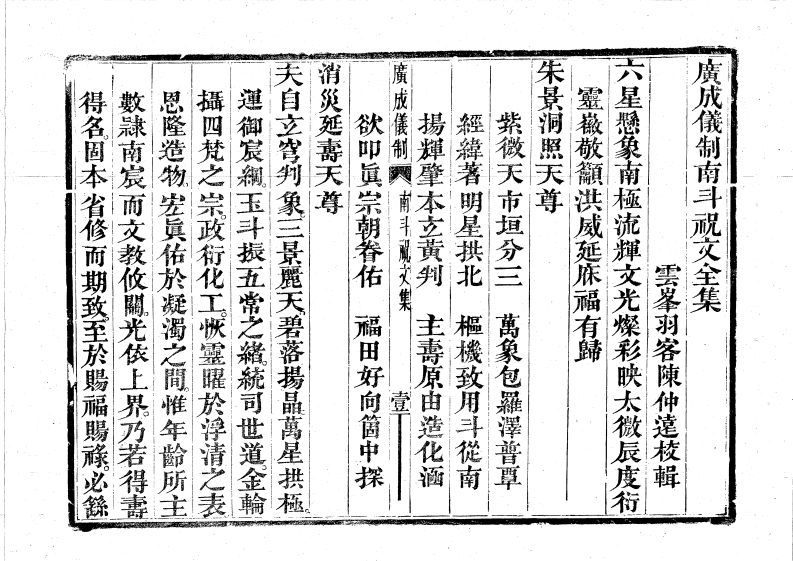 廣成儀制南斗祝文全集
雲峯羽客陳仲遠校輯
六星懸象南極流輝文光燦彩映太微辰度衍
靈嶽敬籲洪威延庥福有歸
朱景洞照天尊
紫微天市垣分三　萬象包羅澤普覃
經緯著明星拱北　樞機致用斗從南
揚輝肇本立黃判　主壽原由造化涵
欲叩眞宗朝眷佑　福田好向箇中探
廣成儀制　南斗祝文集　壹
消災延壽天尊
夫自立穹判象。三景麗天。碧落揚晶。萬星拱極。
運御宸綱。玉斗振五常之緒。統司世道。金輪
攝四梵之宗。政衍化工。恢靈曜於浮清之表
恩隆造物。宏眞佑於凝濁之間。惟年齡所主
數隷南宸。而文教攸關。光依上界。乃若得壽
得名。固本省修而期致。至於賜福賜祿。必繇